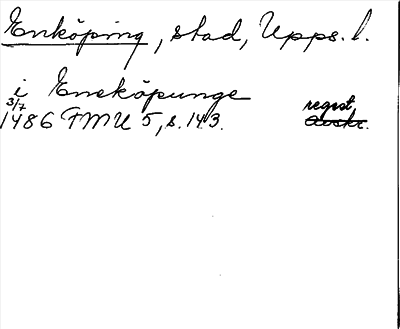 Enköping, stad, Upps. l.
i Eneköpunge
3/7 regest.
1486 FMU 5, s. 143. Avskr.